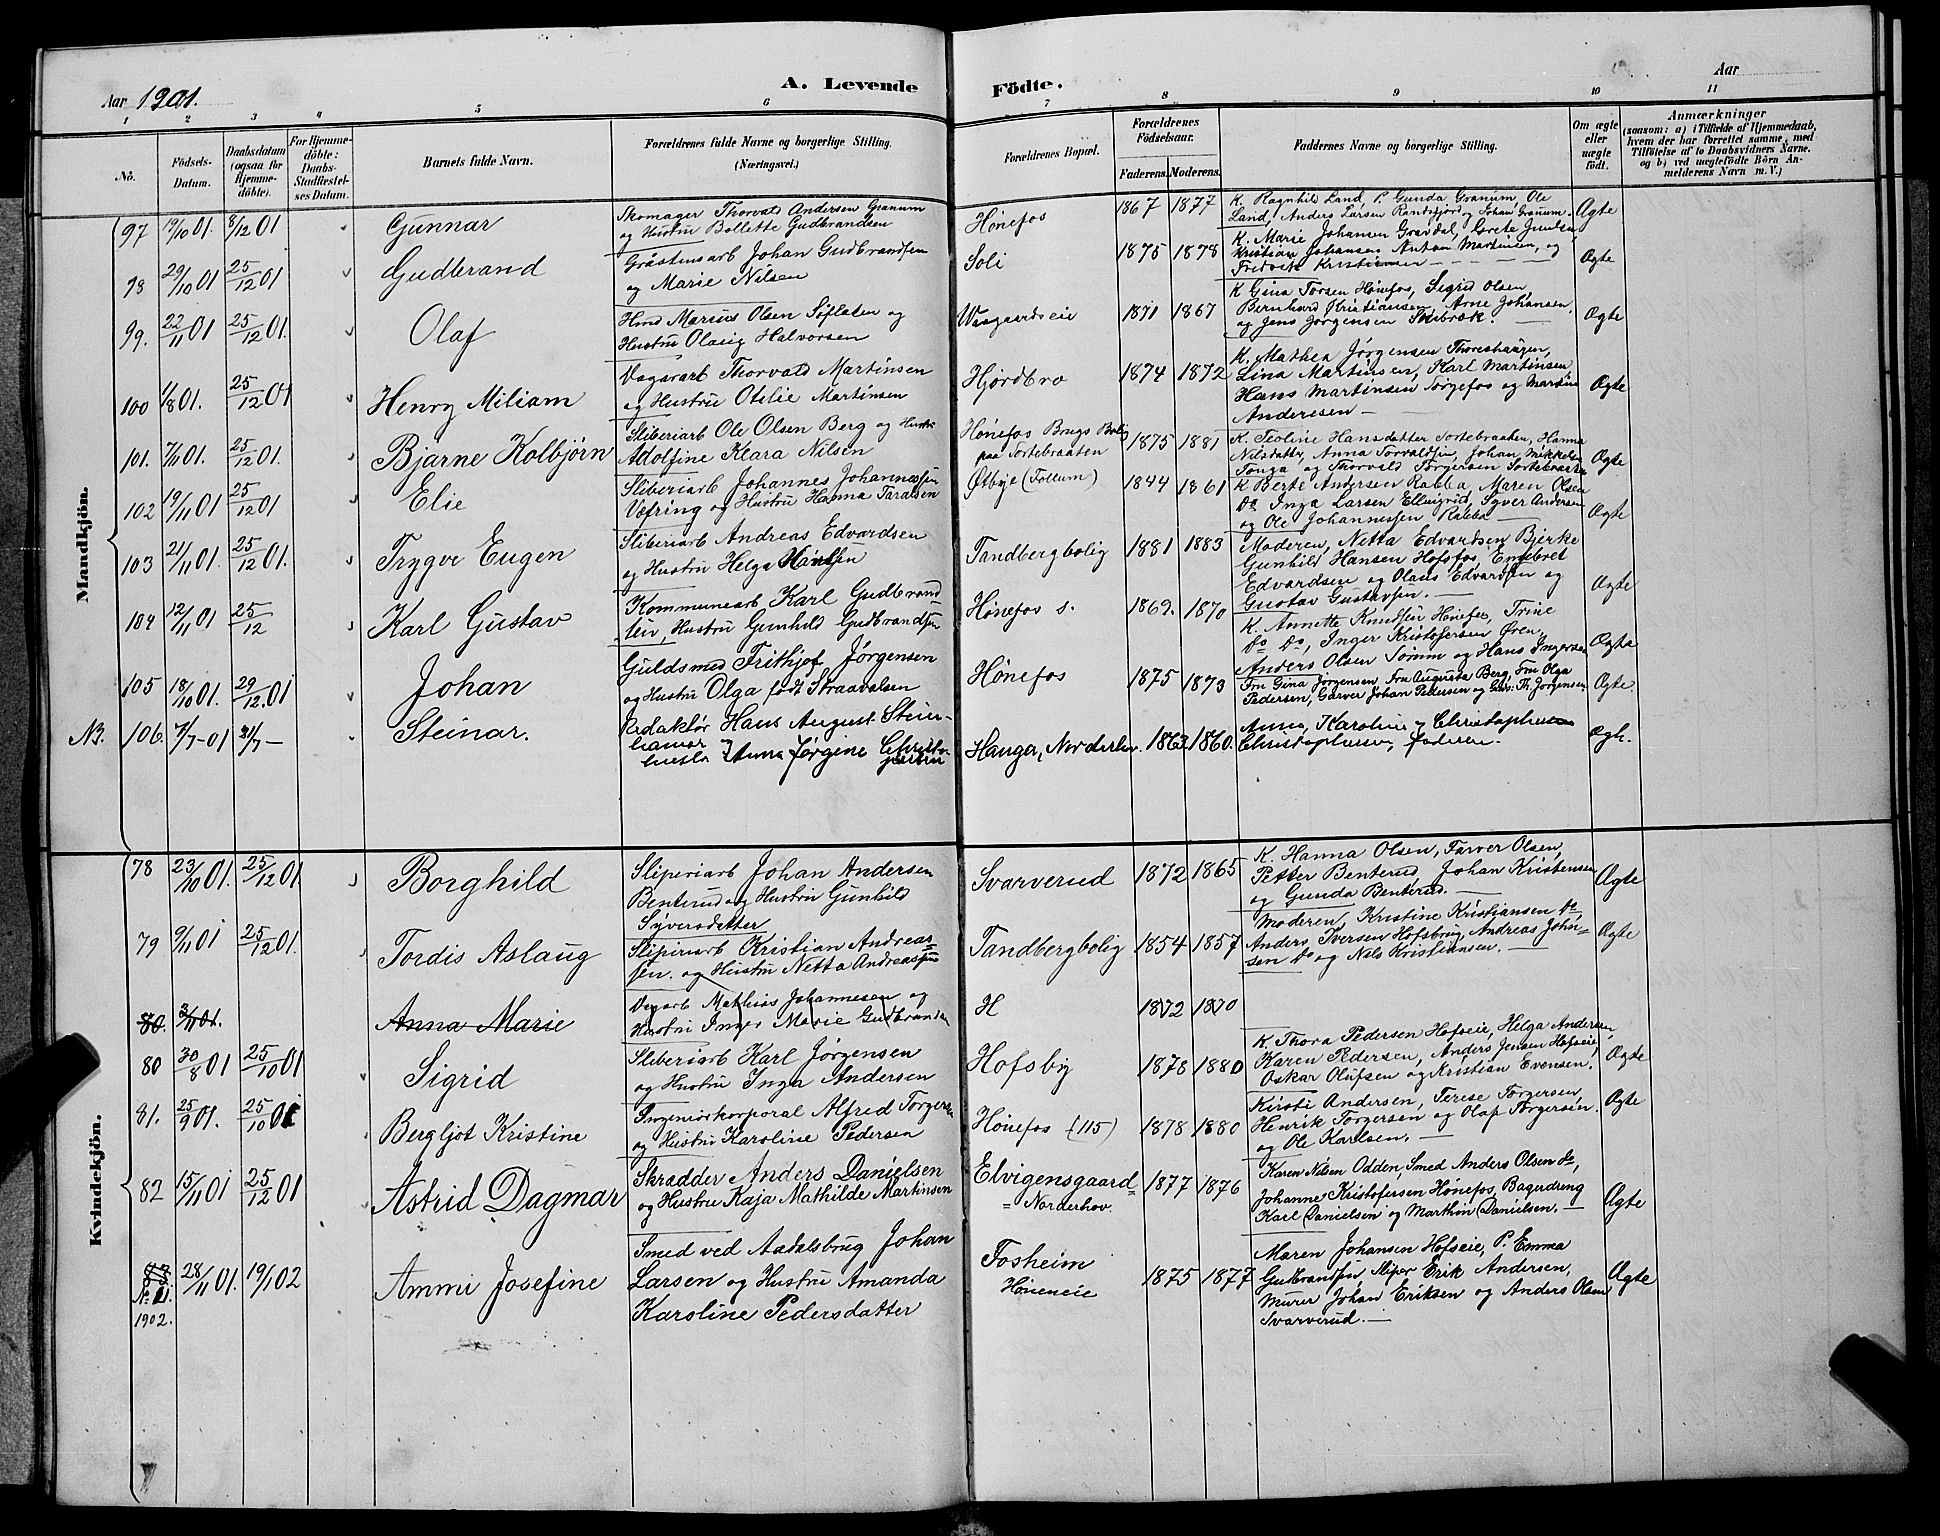 Aar 1901.
A. Levende
Födte.
Aar
1 2 3 4 5 6 7 8 9 10 11
No.
Födsels-
Datum.
Daabsdatum
(ogsaa for
Hjemme-
döbte).
For Hjemme-
döbte:
Daabs-
Stadfæstel-
ses Datum.
Barnets fulde Navn.
Forældrenes fulde Navne og borgerlige Stilling.
(Næringsvei.)
Forældrenes Bopæl.
Forældrenes
Födselsaar.
Faderens. Moderens.
Faddernes Navne og borgerlige Stilling.
Om ægte
eller
uægte
født.
Anmærkninger
(saasom: a) i Tilfælde af Hjemmedaab,
hvem der har forrettet samme, med
Tilföielse af to Daabsvidners Navne.
og b) ved uægtefödte Börn An-
melderens Navn m. V.)
Mandkjön.
97 19/10 01. 8/12 01 Gunnar
Skomager Thorvald Andersen Granum
og Hustru Bollette Gudbrandsen
Hønefos 1867 1877
K. Ragnhild Land, P. Gunda Granum, Ole
Land, Anders Larsen Randsfjord og Johan Granum.
Ægte
98 29/10 01 25/12 01 Gudbrand
Gråstensarb Johan Gudbrandsen
og Marie Nilsen
Soli 1875 1878
K. Marie Johansen Gravdal, Grete
Kristian Johansen Anton Martinsen, og
Fredrik Kristiansen
Ægte
99. 22/11 01 25/12 01. Olaf
Hmd Marius Olsen Søflaten og
Hustru Olaug Halvorsen
Vaagaardseie 1871 1867
K Gina Torsen Hønefos, Sigrid Olsen,
Bernhard Kristiansen, Arne Johansen,
og Jens Jørgensen
Ægte
100 1/8 01. 25/12 01 Henry Miliam
Dagarb Thorvald Martinsen
og Hustru Otelie Martinsen
Hjørdbro 1874 1872
K. Mathea Jørgensen Thoreshaugen,
Lina Martinsen, Karl Martinsen,
Hans Martinsen Torgefos og Martin
Andersen
Ægte
101. 7/11 01. 25/12 01. Bjarne Kolbjørn
Sliberiarb Ole Olsen Berg og Hustr
Adolfine Klara Nilsen
Hønefos Brugs Bolig
paa Sortebraaten 1875 1881
K. Teoline Hansdatter Sortebraaten, Hanna
Nilsdatter, Anna Torvaldsen, Johan Mikkelsen
Tonga og Thorvald Torgersen Sortebraaten
Ægte
102 19/11 01 25/12 01 Elie
Sliberiarb Johannes Johannessen
Væfring og Hustru Hanna
Østbye (Follum) 1844 1861
K Berte Andersen Rabba, Maren Olsen
Do Inga Larsen Ellvigrud, Syver Andersen
og Ole Johannessen Rabba
Ægte
103 21/11 01. 25/12 01. Trygve Eugen
Sliberiarb Andreas Edvardsen
og Hustru Helga Hansen
Tandbergbolig 1881 1883
Moderen, Netta Edvardsen Bjerke
Gunhild Hansen Hofsfos, Engebret
Edvardsen og Olaus Edvardsen og
Gustav Gustavsen.
Ægte
104 12/11 01 25/12 Karl Gustav
Kommunearb Karl Gudbrand
sen, Hustru Gunhild Gudbrandsen
Hønefos s. 1869. 1870
K. Annette Knudsen Hønefos, Trine
Do Do, Inger Kristofersen Øren,
Anders Olsen Sørum og Hans Ingersen
Ægte
105 18/10 01. 29/12.01 Johan
Guldsmed Frithjof Jørgensen
og Hustru Olga født Straavalsen
Hønefos 1875 1873
Fru Gina Jørgensen, Fru Augusta Berg, Fru Olga
Pedersen, Garver Johan Pedersen og Gv: Th. Jørgensen
Ægte.
NB. 106. 7/7-01 21/7- Steinar.
Redaktør Hans August Stein-
hamar
og Anna Jørgine Christo-
phersen
Hauger, Norderhov. 1863. 1860.
Anna, Karoline og Christopher
Christophersen, faderen.
Ægte.
Kvindekjön.
78 23/10 01. 25/12 01 Borghild
Sliperiarb Johan Andersen
Benterud og Hustru Gunhild
Syversdatter
Svarverud 1872 1865
K. Hanna Olsen, Farver Olsen,
Petter Benterud, Johan Kristensen
og Gunda Benterud.
Ægte
79 9/11 01 25/12 01. Tordis Aslaug
Sliperiarb Kristian Andreas-
sen og Hustru Netta Andreassen
Tandbergbolig 1854 1857
Moderen, Kristine Kristiansen Do
Anders Iversen Hofsbrug, Andreas John-
sen Do og Nils Kristiansen.
Ægte
80. 3/11 01. Anna Marie
Dagarb Mathias Johannesen og
Hustru Inger Marie Gudbrandsen
H 1872 1870
80 30/8 01 25/10 01 Sigrid
Sliberiarb Karl Jørgensen
og Hustru Inga Andersen
Hofsby 1878 1880
K. Thora Pedersen Hofseie, Helga Andersen
Karen Pedersen, Anders Jensen Hofseie,
Oskar Olufsen og Kristian Evensen.
Ægte
81. 25/9 01. 25/10 01 Bergljot Kristine
Ingeniørkorporal Alfred Torgersen
og Hustru Karoline Pedersen
Hønefos (115) 1878 1880
Kirsti Andersen, Terese Torgersen,
Henrik Torgersen og Olaf Torgersen.
og Ole Karlsen.
Ægte
82 15/11 01 25/12 01 Astrid Dagmar
Skrædder Anders Danielsen
og Hustru Kaja Mathilde Martinsen
Elvigensgaard=
= Norderhov. 1877 1876
Karen Nilsen Odden, Smed Anders Olsen do,
Johanne Kristofersen Hønefos, Bagerdreng
Karl Danielsen og Marthin Danielsen.
Ægte
No 1.
1902.
28/11 01. 19/1 02 Ammi Josefine
Smed ved Aadalsbrug Johan
Larsen og Hustru Amanda
Karoline Pedersdatter
Fosheim
Høneneie 1875 1877
Maren Johansen Hofseie, P. Emma
Gudbrandsen, Sliper Erik Andersen,
Murer Johan Eriksen og Anders Olsen
Svarverud.
Ægte